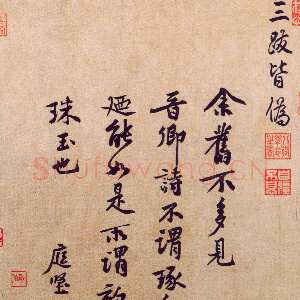 三跋皆偽
余舊不多見
晉卿詩不謂琢
廼能如是所謂
珠玉也
庭堅